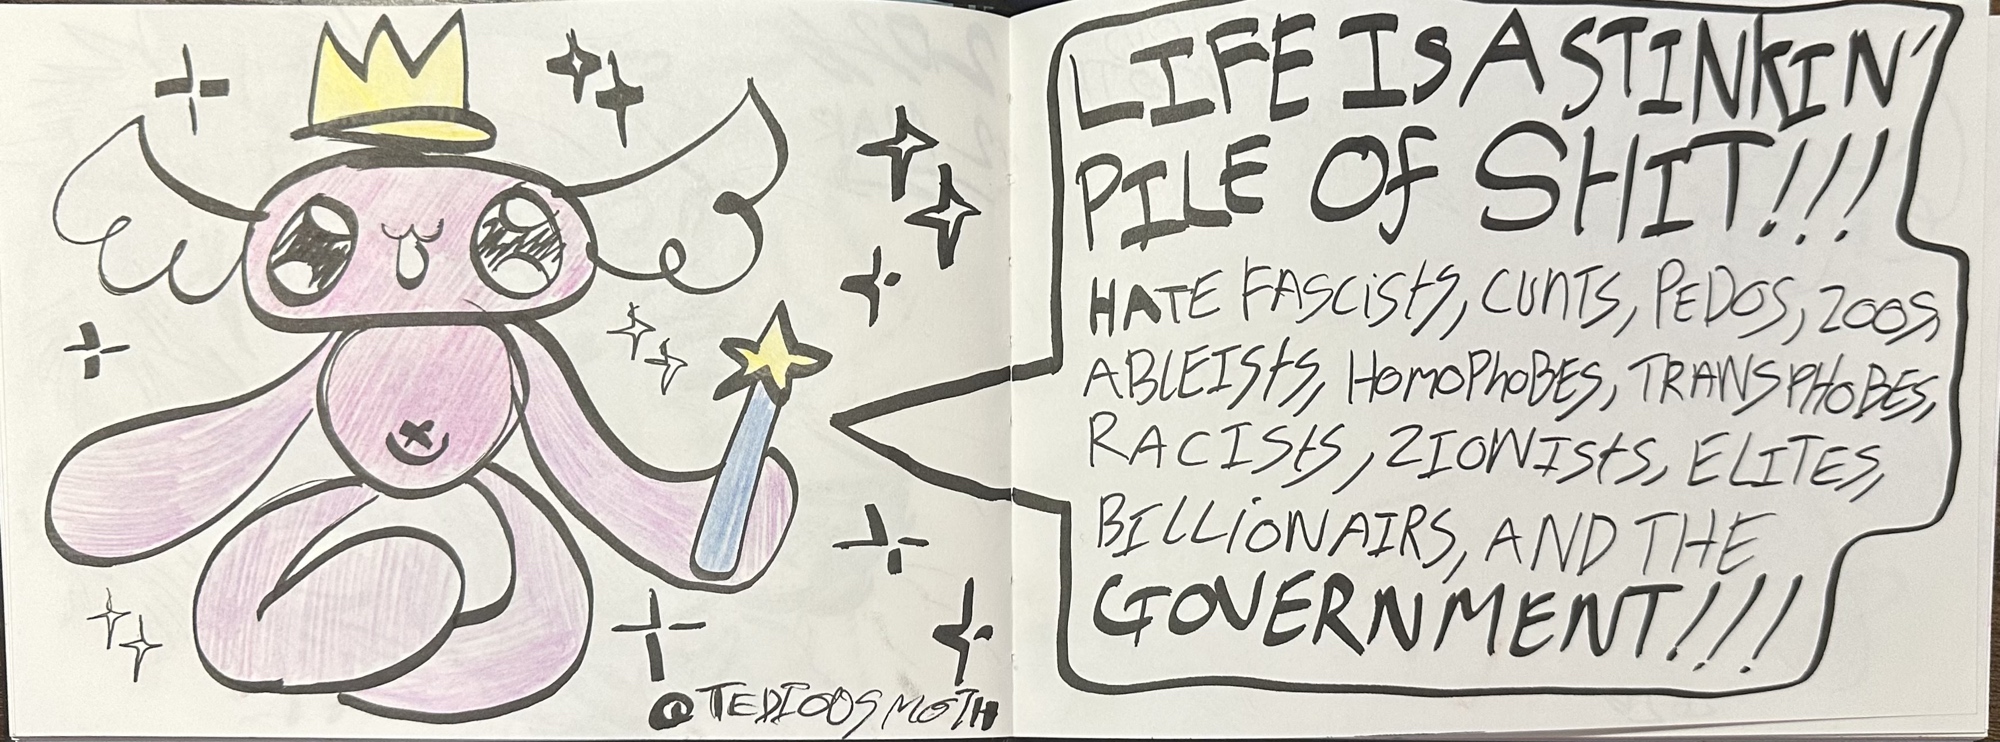 LIFE IS A STINKIN'
PILE OF SHIT!!!
HATE FASCISTS, CUNTS, PEDOS, ZOOS,
ABLEISTS, HOMOPHOBES, TRANSPHOBES,
RACISTS, ZIONISTS, ELITES,
BILLIONAIRS, AND THE
GOVERNMENT!!!
@TEDIOUSMOTH